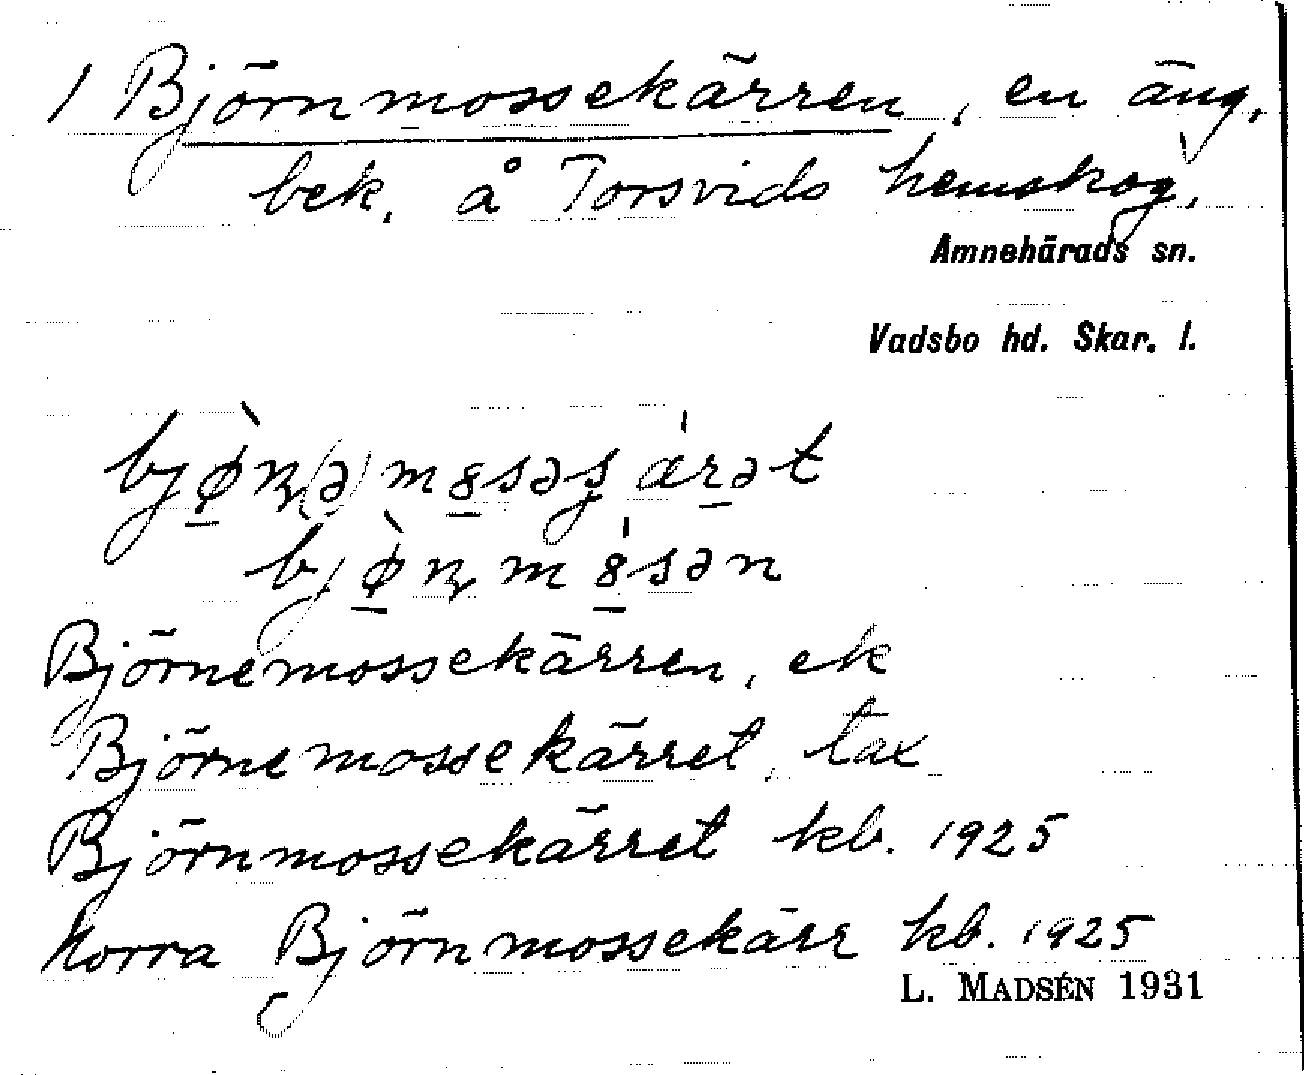 1 Björnmossekärren, en äng,
bek. å Torsvids hemskog.
Amnehärads sn.
Vadsbo hd. Skar. l.
Björnemossekärren, ek
Björnemossekärret, tax
Björnmossekärret kb. 1925
Norra Björnmossekärr kb. 1925
L. MADSÉN 1931